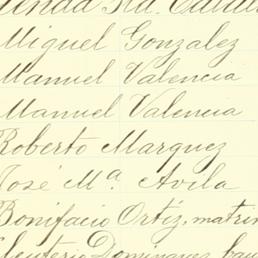 Sta. Catali
Miguel Gonzalez
Manuel Valencia
Manuel Valencia
Roberto Marquez
José Mª Avila
Bonifacio Ortíz, matrim
Eleuterio Dominguez, bau